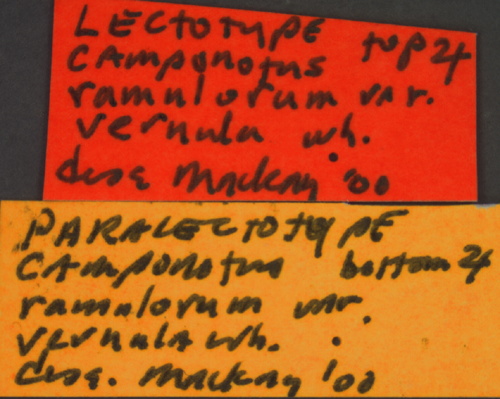 LECTOTYPE
Camponotus top ☿
ramulorum var.
vernula wh.
desg Mackay '00
PARALECTOTYPE
Camponotus bottom ☿
ramulorum var.
vernula wh.
desg. Mackay '00